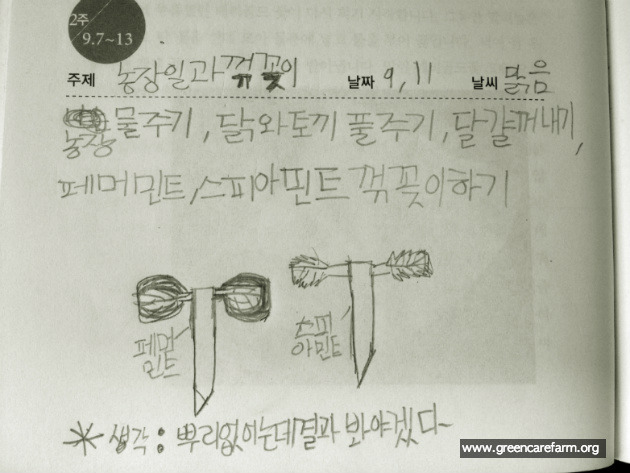 2주
9.7~13
주제 농장일과 꺾꽂이 날짜 9, 11 날씨 맑음
농장 물주기, 닭와토끼 풀주기, 달걀꺼내기,
페머민트, 스피아민트 꺾꽂이하기
페머민트
스피아민트
생각 : 뿌리없이는데결과 봐야겠다~
www.greencarefarm.org